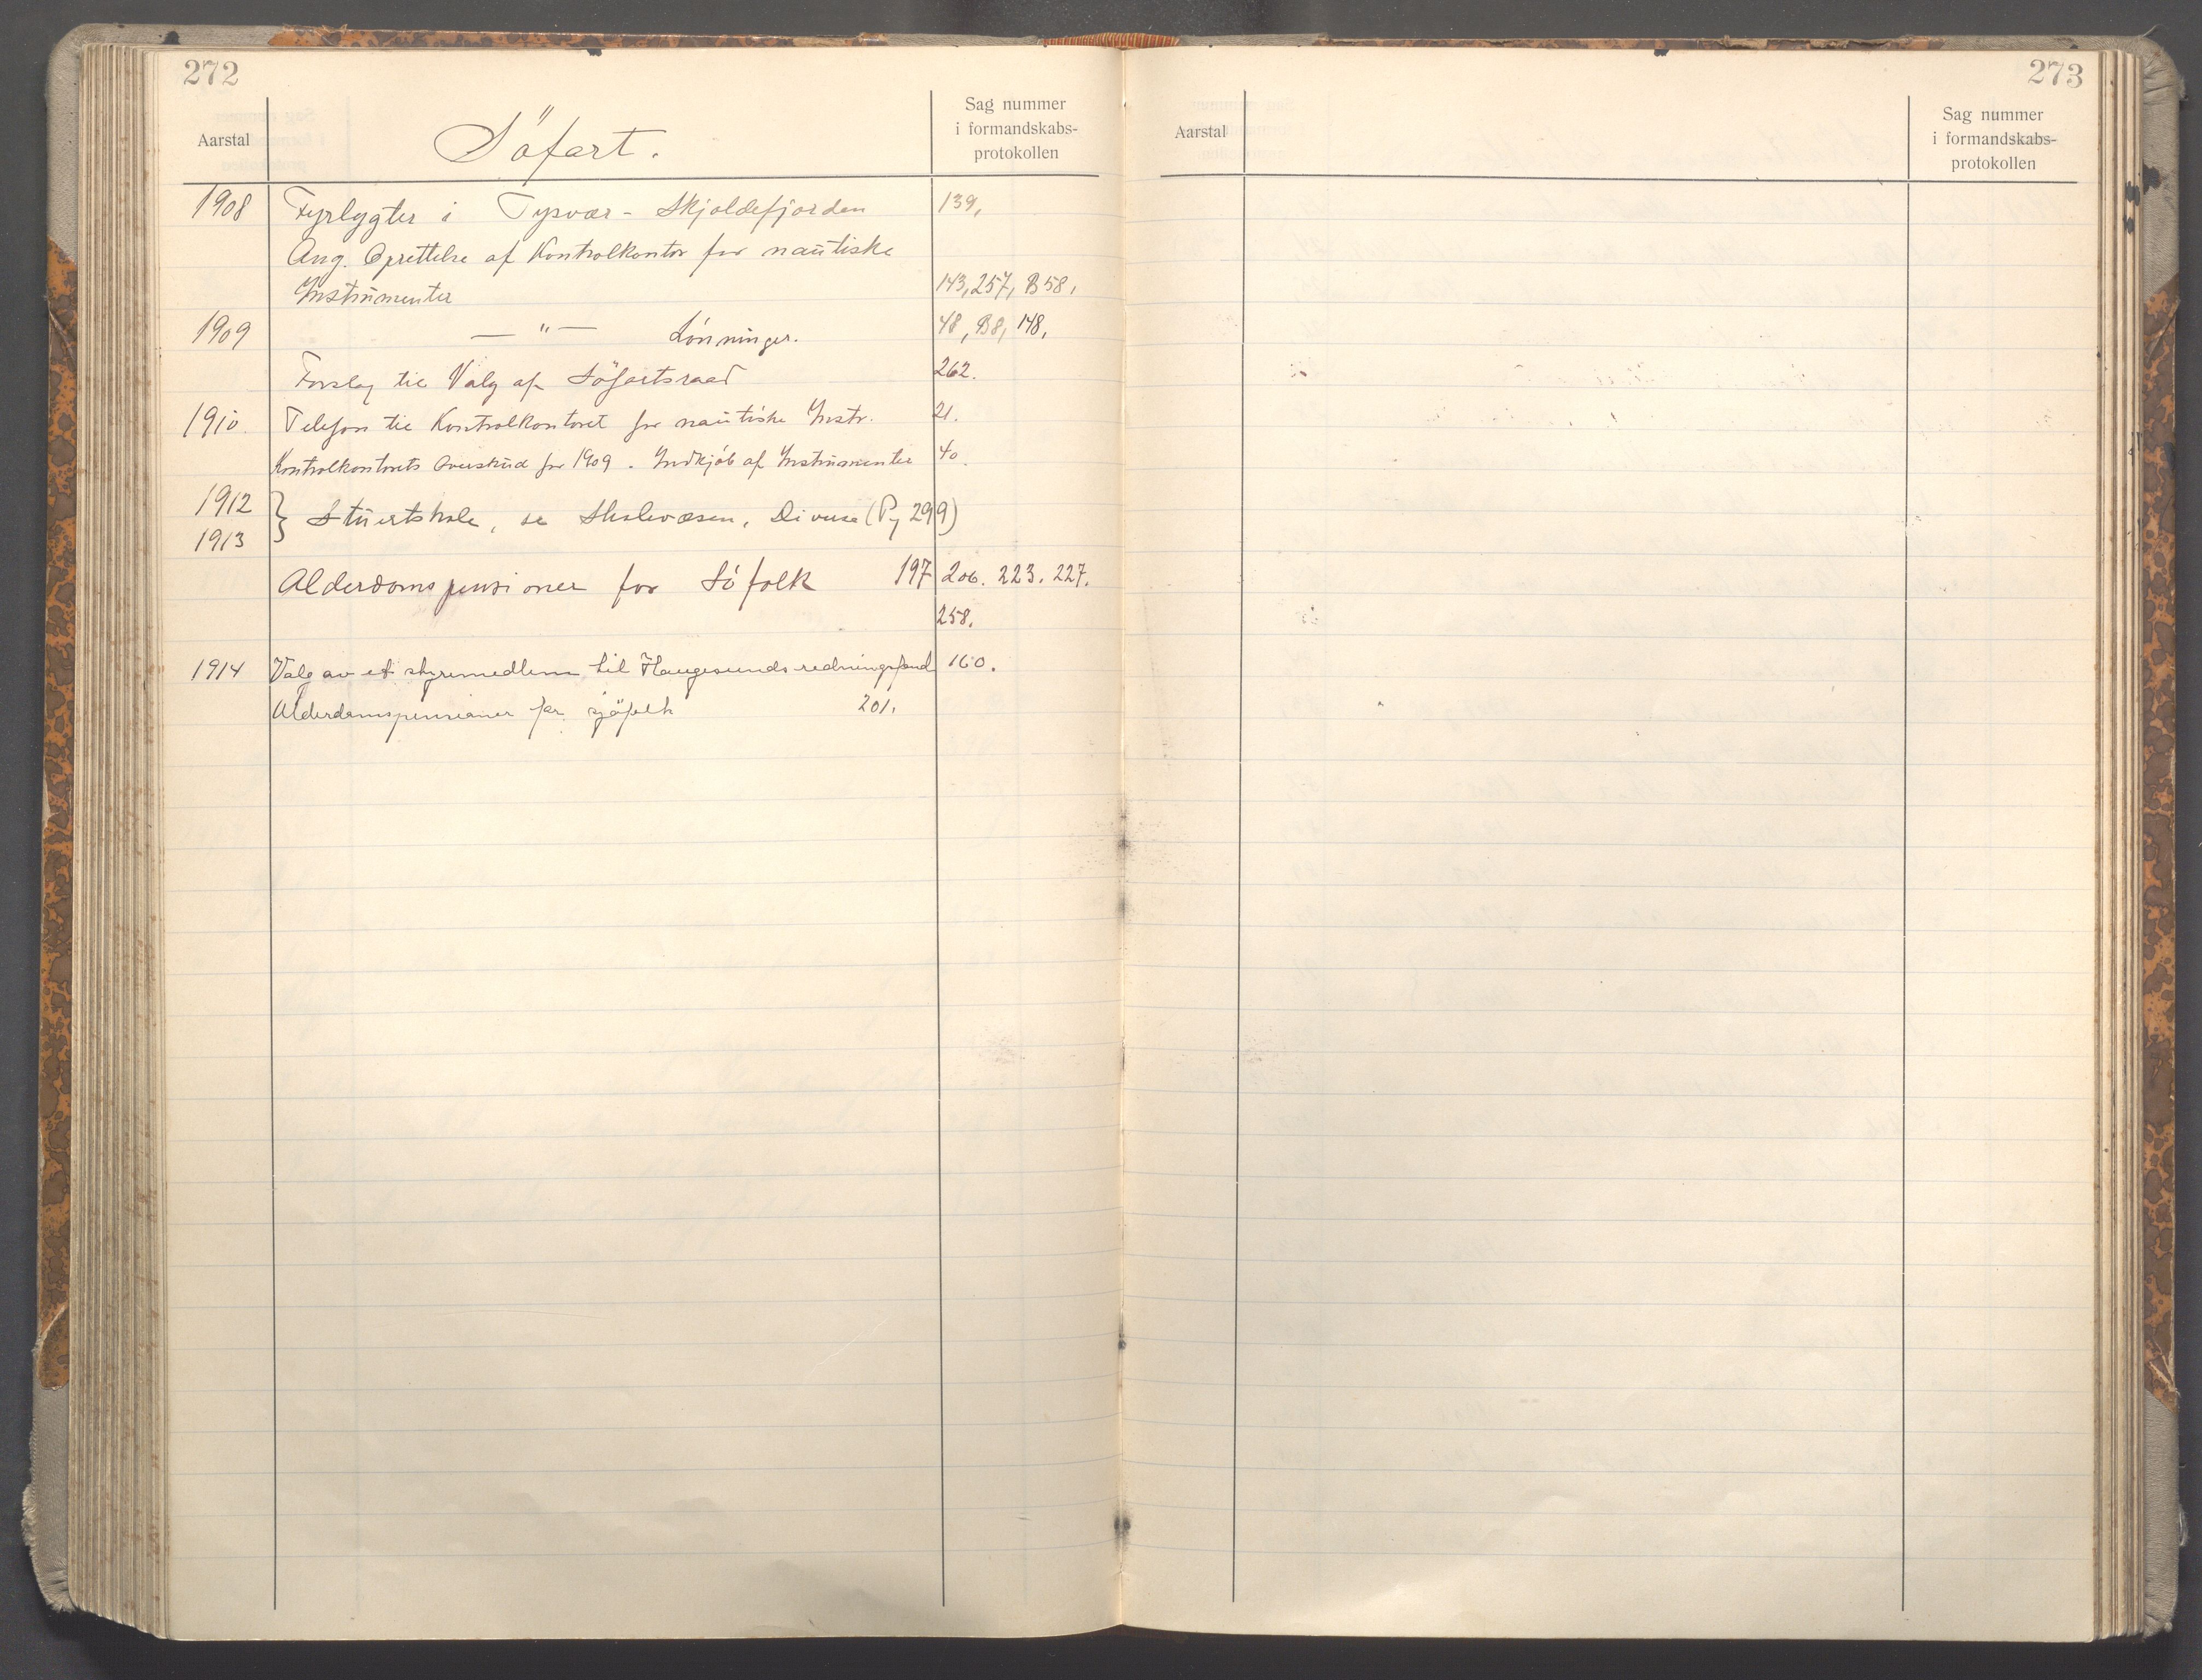 272
Aarstal
Söfart.
Sag nummer
i formandskabs-
protokollen
1908 Fyrlygter i Tysvær - Skjoldefjorden 139,
Ang. Oprettelse af Kontrolkontor for nautiske
Instrumenter 143, 257, B 58,
1909 — " — Lönninger. 48, B8, 148,
Forslag til Valg af Söfartsraad 262.
1910. Telefon til Kontrolkontoret for nautiske Instr. 21.
Kontrolkontorets Overskud for 1909. Indkjöb af Instrumenter 40.
1912
1913 } Stuertskole, se Skolevæsen, Diverse (Pg 299)
Alderdomspensioner for Söfolk 197 206. 223. 227.
258.
1914 Valg av et styremedlem til Haugesunds redningsfond 160.
Alderdomspensioner for sjöfolk 201.
273
Aarstal
Sag nummer
i formandskabs-
protokollen